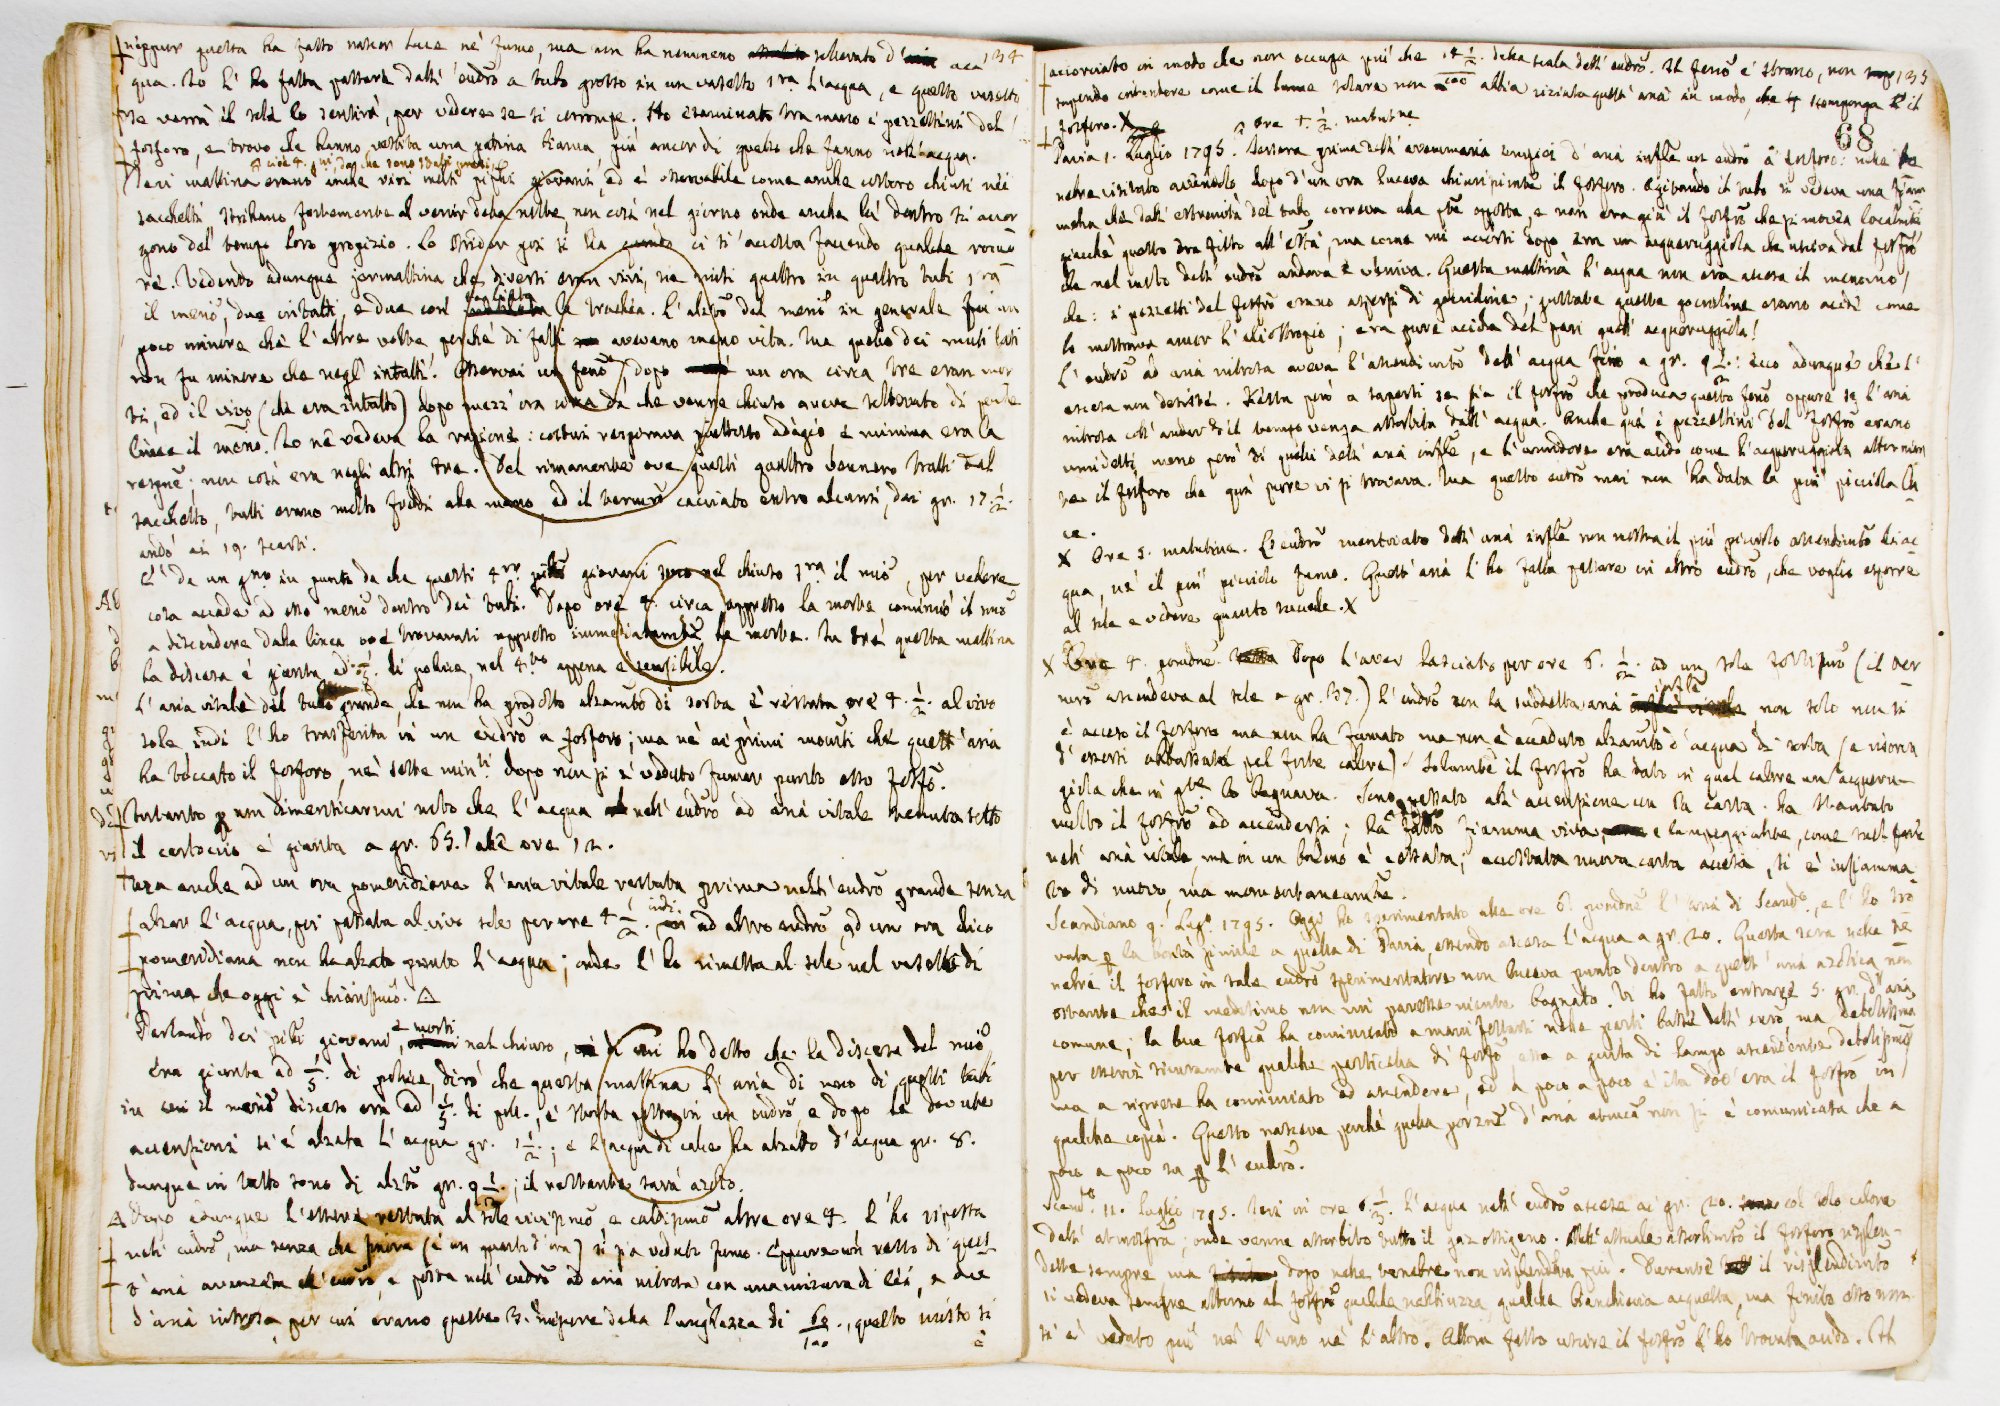 neppur questa ha fatto nascer luce né fumo, ma non ha nemmeno sollevato d' aca 134
qua. Io l' ho fatta passare dall' eudro a tubo grosso in un vasetto 1ra l'acqua, e questo vasetto
se verrà il sole lo sentirà, per vedere se si corrompe. Ho esaminato tra mano i pezzettini del
fosforo, e trovo che hanno vestita una patina bianca più ancor di quello che fanno nell'acqua.
è cioè 4. che sono
Ieri mattina erano anche vivi giovani, ed è osservabile come anche costoro chiusi nei
sacchetti stridano fortemente al venir della notte non così nel giorno onde anche là dentro si accor
gono del tempo loro propizio. Lo strider poi si ha ci si accosta facendo qualche romo
re. Vedendo adunque jermattina che diversi eran vivi, ne misi quattro in quattro tubi 1ra
il merio, due intatti, e due con la trachea. L'alzo del merio in generale fu un
poco minore che l'altre volte perché di fatti avevano meno vita. Ma quello dei
non fu minore che negl' intatti. Osservai un feno, dopo un ora circa tre eran mor
ti, ed il vivo (che era intatto) dopo mezz'ora circa da che venne chiuso aveva sollevato di
linee il merio. Io ne vedeva la ragione: costui respirava piuttosto adagio, e minima era la
; non così era negli altri tre. Del rimanente ove quelli quattro vennero tratti dal
sacchetto, tutti erano molto freddi alla mano, ed il termro cacciato entro alcuni, dai gr. 17.½.
andò ai 19. scarsi.
È da un gno in punto da che questi 4ro giovani sono nel chiuso 1ra il mrio, per vedere
cosa accade ad esso merio dentro dei tubi. Dopo ore 4. circa appresso la morte cominciò il mrio
a discendere dalla linea ove trovavasi appresso immediatamte la morte. In tre questa mattina
la discesa è giunta ad ⅕. di pollice, nel 4to appena è sensibile.
L'aria vitale del tubo grande, che non ha prodotto alzamto di sorta è restata ore 4.½. al vivo
sole indi l'ho trasferita in un eudro a fosforo; ma né ai primi momti che quest'aria
ha toccato il fosforo, né sette minti dopo non si è veduto fumar punto esso fosfo.
Intanto p non dimenticarmi noto che l'acqua nell'eudro ad aria vitale tenuta sotto
il cartoccio è giunta a gr. 65.! alle ore 12.
anche ad un ora pomeridiana l'aria vitale restata prima nell'eudro grande senza
alzar l'acqua, poi passata al vivo sole per ore 4 ½. indi ad altro eudro, ad un ora dico
pomeridiana non ha alzato punto l'acqua; onde l'ho rimessa al sole nel vasetto di
prima che oggi è chiarissmo. △
Parlando dei giovani, e morti nel chiuso, in cui ho detto che la discesa del mrio
era giunta ad ⅕. di pollice, dirò che questa mattina l'aria di uno di quelli tubi
in cui il merio disceso era ad ⅕. di poll., è stata posta in un eudro, e dopo le dovute
accensioni si è alzata l'acqua gr. 1½.; e l'acqua di calce ha alzato d'acqua gr. 8.
dunque in tutto sono di alzto gr. 9½.; il restante sarà azoto.
△ Dopo adunque l'essere restata al sole vivissmo, e caldissmo altre ore 4. l'ho riposta
nell'eudro, ma senza che prima (è un quarto d'ora) si sia veduto fumo. Eppure un resto di ques
t'aria avanzata all'eudro, e posta nell'eudro ad aria nitrosa con una misura di lei, e due
d'aria nitrosa, per cui erano queste 3. misure della lunghezza di 69/100., questo misto si
è
accorciato in modo che non occupa più che 14½/100. della scala dell'eudro. Il feno è strano, non 135
sapendo intendere come il lume solare non abbia viziata quest'aria in modo, che scomponga il
fosforo. X
68
à ore 4.½. matutine
Pavia 1. Luglio 1795. Iersera prima dell'avemmaria empiei d'aria infle un eudro a fosforo: nelle
nebre visitato avendolo dopo d'un ora luceva chiarissimte il fosforo. Agitando il tubo si vedeva una fiam
mella che dall'estremità del tubo correva alla pte opposta, e non era già il fosfro che si moveva localmte
giacché questo era fitto all'està, ma come mi accorsi dopo era un acqueruggiola che usciva dal fosfro
che nel voto dell'eudro andava e veniva. Questa mattina l'acqua non era ascesa il menomo!
che: i pezzetti del fosfro erano aspersi di goccioline; gustate queste goccioline erano acide come
lo mostrava ancor l'eliotropio; era pure acida del pari quell'acqueruggiola!
L'eudro ad aria nitrosa aveva l'ascendimto dell'acqua fino a gr. 9½.: ecco adunque che l'
ascesa non desiste. Resta però a sapersi se sia il fosfro che produca questo feno oppure se l'aria
nitrosa coll'andar del tempo venga assorbita dall'acqua. Anche quà i pezzettini del fosfro erano
umidetti meno però di quelli dell'aria infle, e l'umidore era acido come l'acqueruggiola
te il fosforo che quà pure vi si trovava. Ma questo eudro mai non ha data la più picciola lu
ce.
X Ore 5. matutine. L'eudro mentovato dell'aria infle non mostra il più picciolo ascendimto di ac
qua, né il più picciolo fumo. Quest'aria l'ho fatta passare in altro eudro, che voglio esporre
al sole e vedere quanto succede. X
X Ore 4. pomdne. Dopo l'aver lasciato per ore 6.½. ad un sole (il ter
mro ascendeva al sole a gr. 37.) l'eudro con la suddetta aria infle non solo non si
è acceso il fosforo ma non ha fumato ma non è accaduto alzamto d'acqua di sorta (a riserva
d'essersi abbassata pel forte calore). Solamte il fosfro ha dato in quel calore un'acqueru-
giola che in pte lo bagnava. Sono passato all'accensione con la carta. Ha stentato
molto il fosfro ad accendersi; ha fatto fiamma viva, e lampeggiante, come suol fare
nell'aria vitale, ma in un baleno è cessata; accostata nuova carta accesa, si è infiamma
to di nuovo, ma momentaneamte.
Scandiano 9. Lugo 1795. Oggi ho sperimentato alle ore 6. pomdne l'aria di Scando, e l'ho tro
vata p la bontà simile a quella di Pavia, essendo ascesa l'acqua a gr. 20. Questa sera nelle te
nebre il fosforo in tale eudro sperimentatore non luceva punto dentro a quest'aria azotica non
ostante che il medesimo non mi paresse niente bagnato. Vi ho fatto entrare 5. gr. d'aria
comune; la luce fosfca ha cominciato a manifestarsi nelle parti basse dell'eudro, ma debolissma
per esservi sicuramte qualche particella di fosfo essa a guisa di lampo ascendente debolissmo
ma a riprese ha cominciato ad ascendere, ed a poco a poco è ita dov'era il fosfro in
qualche copia. Questo nasceva perché quella porzne d'aria atmca non si è comunicata che a
poco a poco su p l'eudro.
Scando 11. Luglio 1795. Ieri in ore 6⅓. l'acqua nell'eudro ascese ai gr. 20. col solo calore
dell'atmosfra; onde venne assorbito tutto il gaz ossigeno. Nell'attuale assorbimto il fosforo risplen-
dette sempre ma dopo nelle tenebre non risplendeva più. Durante il risplendimto
si vedeva sempre attorno al fosfro qualche nebbiuzza qualche bianchiccia acquetta, ma finito esso non
si è veduto più né l'uno né l'altro. Allora fatto uscire il fosfro l'ho trovato acido. Il